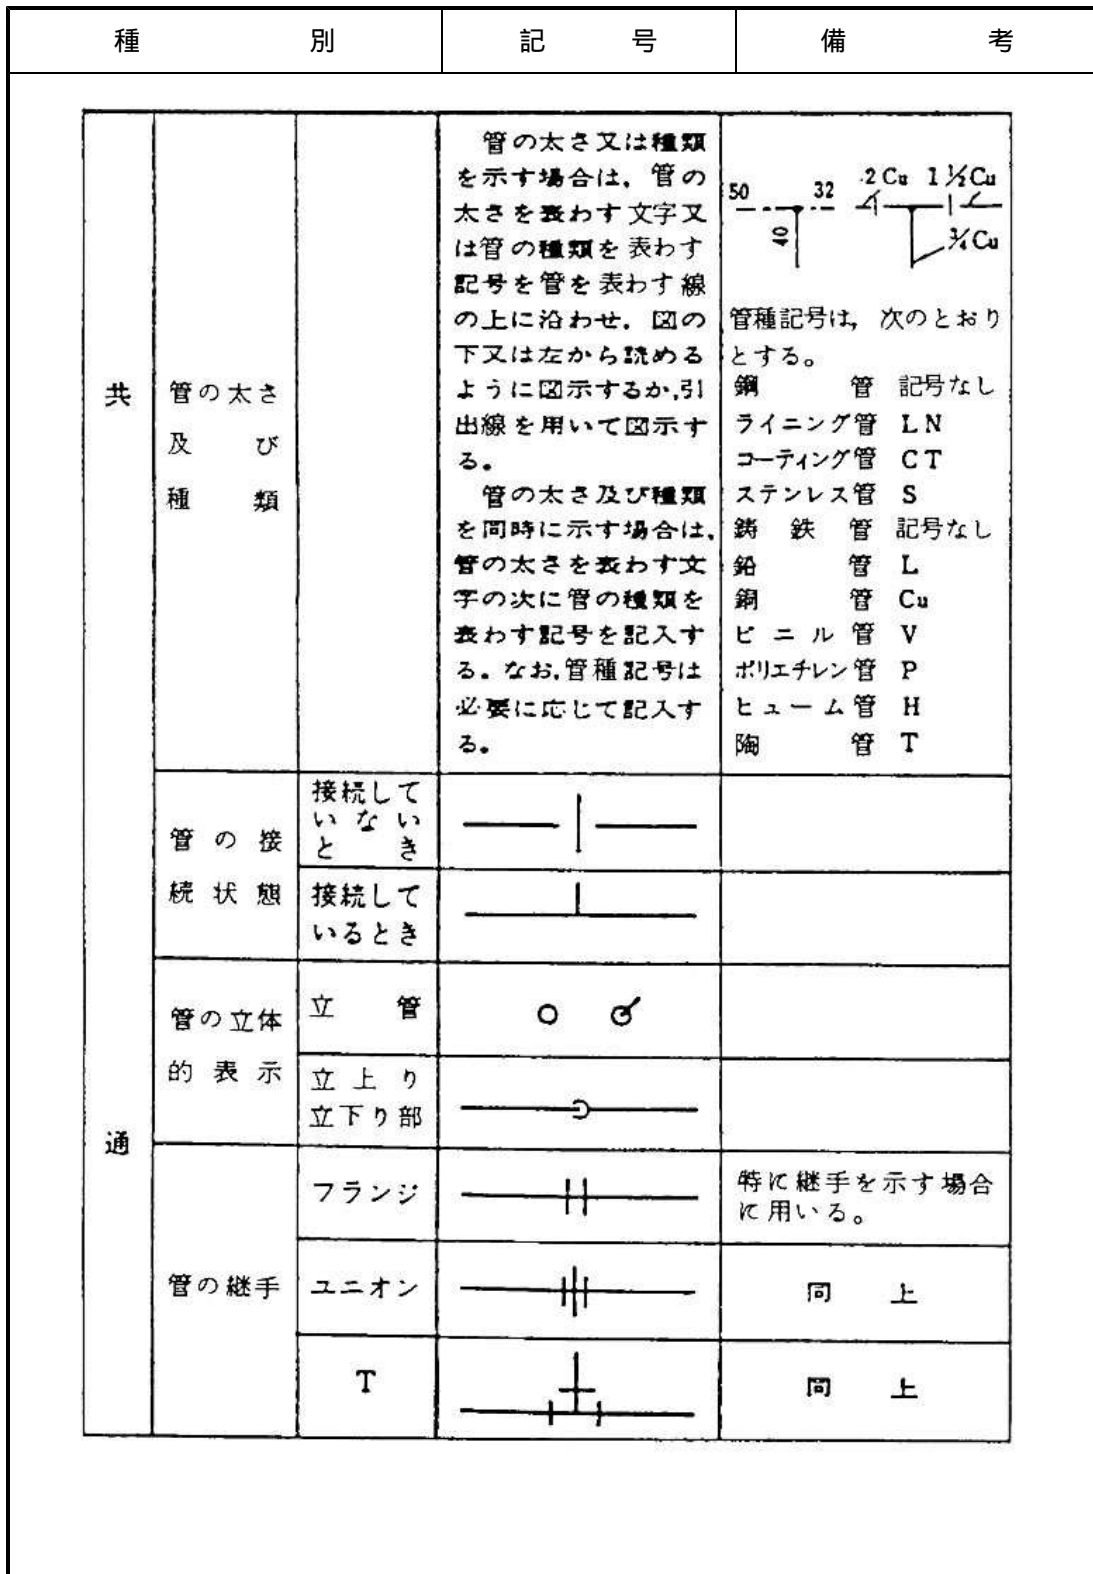 種 別 記 号 備 考
共
通
管の太さ
及 び
種 類
管の太さ又は種類
を示す場合は、管の
太さを表わす文字又
は管の種類を表わす
記号を管を表わす線
の上に沿わせ、図の
下又は左から読める
ように図示するか、引
出線を用いて図示す
る。
管の太さ及び種類
を同時に示す場合は、
管の太さを表わす文
字の次に管の種類を
表わす記号を記入す
る。なお、管種記号は
必要に応じて記入す
る。
50 32 2Cu 1½Cu
40 ¾Cu
管種記号は、次のとおり
とする。
鋼 管 記号なし
ライニング管 LN
コーティング管 CT
ステンレス管 S
鋳 鉄 管 記号なし
鉛 管 L
銅 管 Cu
ビニル管 V
ポリエチレン管 P
ヒューム管 H
陶 管 T
管の接
続状態
接続して
いない
と き
接続して
いるとき
管の立体
的表示
立 管
立上り
立下り部
管の継手
フランジ
特に継手を示す場合
に用いる。
ユニオン
同 上
T
同 上